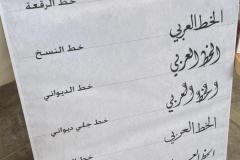 خط الرقعة
الخط العربي
خط النسخ
الخط العربي
خط الديواني
الخط العربي
خط جلي ديواني
الخط العربي
الخط العربي